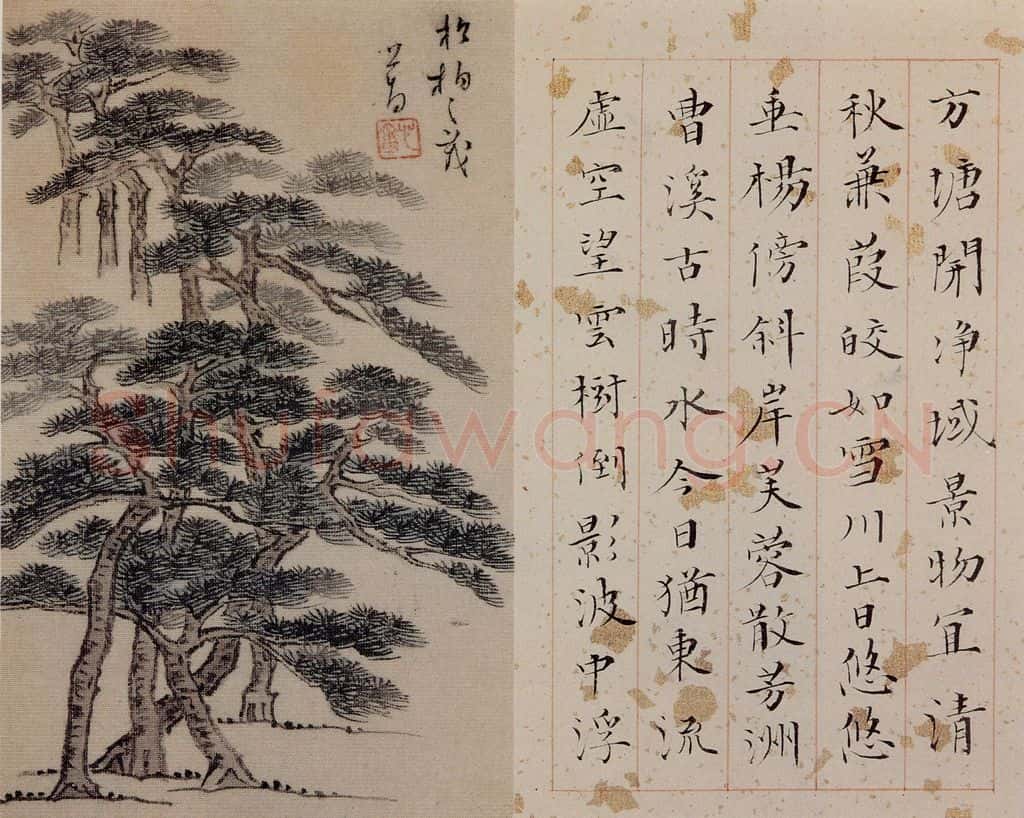 方塘開净域景物宜清
秋蒹葭皎如雪川上日悠悠
垂楊傍斜岸芙蓉散芳洲
曹溪古時水今日猶東流
虛空望雲樹倒影波中浮
松柏之茂
心畬
Shufawang.CN